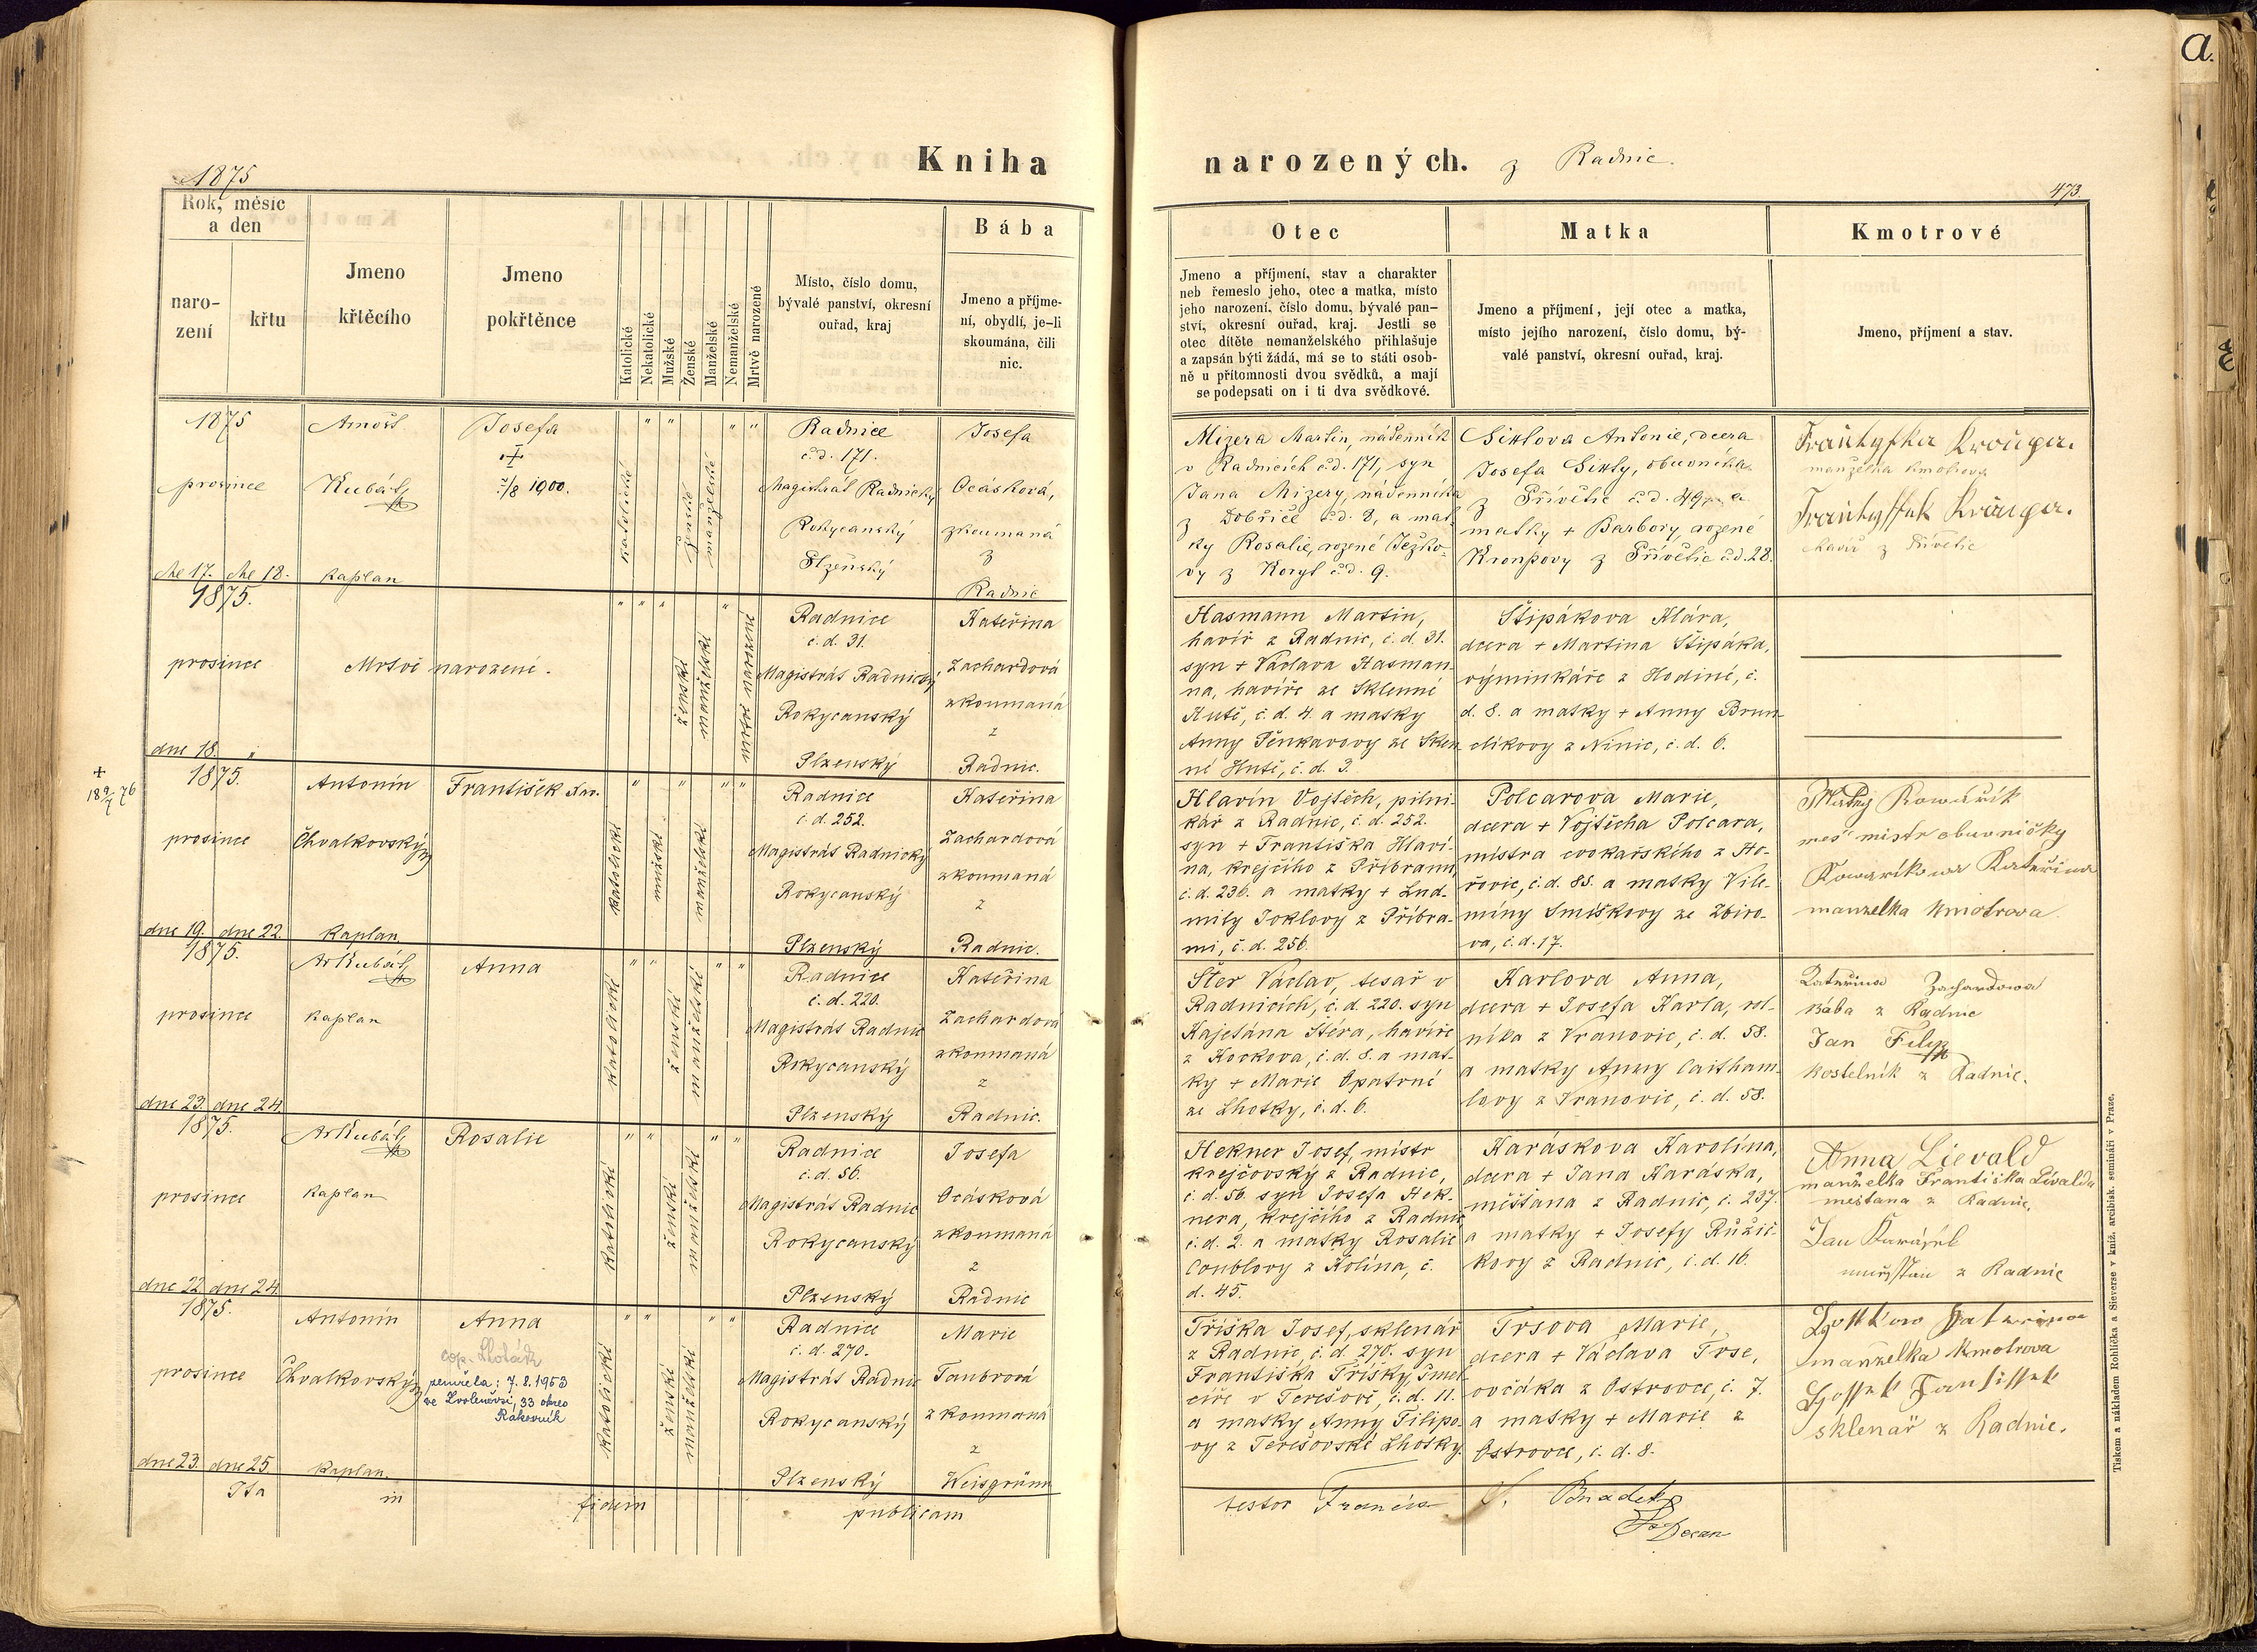 1875
Kniha narozených. z Radnic.
473.
a.
Rok, měsíc
a den
naro-
zení
křtu
Jmeno
křtěcího
Jmeno
pokřtěnce
Katolické
Nekatolické
Mužské
Ženské
Manželské
Nemanželské
Mrtvě narozené
Místo, číslo domu,
bývalé panství, okresní
ouřad, kraj
Bába
Jmeno a příjme-
ní, obydlí, je-li
skoumána, čili
nic.
Otec
Jmeno a příjmení, stav a charakter
neb řemeslo jeho, otec a matka, místo
jeho narození, číslo domu, bývalé pan-
ství, okresní ouřad, kraj. Jestli se
otec dítěte nemanželského přihlašuje
a zapsán býti žádá, má se to státi osob-
ně u přítomnosti dvou svědků, a mají
se podepsati on i ti dva svědkové.
Matka
Jmeno a příjmení, její otec a matka,
místo jejího narození, číslo domu, bý-
valé panství, okresní ouřad, kraj.
Kmotrové
Jmeno, příjmení a stav.
1875
prosince
dne 17. dne 18.
Arnošt
Kubát
kaplan
Josefa
2/8 1900.
katolické
ženské
manželské
Radnice
č. d. 171.
Magistrát Radnický
Rokycanský
Plzeňský
Josefa
Ocásková,
zkoumaná
z
Radnic
Mizera Martin, nádenník
v Radnicích č. d. 171, syn
Jana Mizery, nádenníka
z Dobříče č. d. 8, a mat-
ky Rosalie, rozené Ježko-
vy z Koryt č. d. 9.
Sixlova Antonie, dcera
Josefa Sixly, obuvníka
z Přívětic č. d. 49, a
matky + Barbory, rozené
Krompovy z Přívětic č. d. 28.
manželka kmotrova
havíř z Přívětic
1875.
prosince
dne 18. "
Mrtvě narozené.
ženské
manželské
mrtvě narozené
Radnice
č. d. 31.
Magistrát Radnický
Rokycanský
Plzenský
Kateřina
Zachardová
zkoumaná
z
Radnic.
Hasmann Martin,
havíř z Radnic, č. d. 31.
syn + Václava Hasman-
na, havíře ze Sklenné
Huti, č. d. 4. a matky
Anny Pěnkavovy ze Sklen-
né Huti, č. d. 3.
Štipákova Klára,
dcera + Martina Štipáka,
výminkáře z Hodiné, č.
d. 8. a matky + Anny Brun-
clíkovy z Ninic, č. d. 6.
1875.
prosince
dne 19. dne 22.
Antonín
Chvalkovský
kaplan
František Ser.
katolické
mužské
manželské
Radnice
č. d. 252.
Magistrát Radnický
Rokycanský
Plzenský
Kateřina
Zachardová
zkoumaná
z
Radnic.
Hlavín Vojtěch, pilni-
kář z Radnic, č. d. 252.
syn + Františka Hlaví-
na, krejčího z Příbrami,
č. d. 236. a matky + Lud-
mily Joklovy z Příbra-
mi, č. d. 256.
Polcarova Marie,
dcera + Vojtěcha Polcara,
mistra cvokařského z Ho-
řovic, č. d. 88. a matky Vile-
míny Smiškovy ze Zbiro-
va, č. d. 17.
Matěj Kowářík
meš mistr obuvničky
Kowaríkowa Kateřina
manzelka kmotrova
1875.
prosince
dne 23. dne 24.
Ar Kubát
kaplan
Anna
katolické
ženské
manželské
Radnice
č. d. 220.
Magistrát Radnic
Rokycanský
Plzenský
Kateřina
Zachardova
zkoumaná
z
Radnic.
Šter Václav, tesař v
Radnicích, č. d. 220. syn
Kajetána Štéra, havíře
z Kockova, č. d. 8. a mat-
ky + Marie Opatrné
ze Lhotky, č. d. 6.
Karlova Anna,
dcera + Josefa Karla, rol-
níka z Vranovic, č. d. 58.
a matky Anny Caitham-
lovy z Vranovic, č. d. 58.
Kateřina Zachardowa
bába z Radnic
Jan Filip
kostelník z Radnic.
1875.
prosince
dne 22 dne 24.
Ar Kubát
kaplan
Rosalie
katolické
ženské
manželské
Radnice
č. d. 56.
Magistrát Radnic
Rokycanský
Plzenský
Josefa
Ocásková
zkoumaná
z
Radnic
Hekner Josef, mistr
krejčovský z Radnic,
č. d. 56. syn Josefa Hek-
nera, krejčího z Radnic,
č. d. 2. a matky Rosalie
Coublovy z Kolína, č.
d. 45.
Karáskova Karolína,
dcera + Jana Karáska,
měšťana z Radnic, č. 237.
a matky + Josefy Růžič-
kovy z Radnic, č. d. 16.
Anna Lievald
manželka Františka Livalda
mešťana z Radnic.
Jan Karásek
z Radnic
1875.
prosince
dne 23. dne 25.
Antonín
Chvalkovský
kaplan
Anna
cop. Lhoták
zemřela: 7. 8. 1953
ve Zvoleněvsi, 33 okres
Rakovník
katolické
ženské
manželské
Radnice
č. d. 270.
Magistrát Radnic
Rokycanský
Plzenský
Marie
Taubrová
zkoumaná
z
Weisgrünu
Tříška Josef, sklenář
z Radnic, č. d. 270. syn
Františka Třísky, šmej-
cíře v Terešově, č. d. 11.
a matky Anny Filipo-
vy z Terešovské Lhotky.
Trsova Marie,
dcera + Václava Trse,
ovčáka z Ostrovce, č. 7.
a matky + Marie z
Ostrovce, č. d. 8.
manželka kmotrova
sklenář z Radnic.
Ita in fidem publicam
testor Francis
Decan
Tiskem a nákladem Rohlíčka a Sieverse v kníž. arcibisk. semináři v Praze.